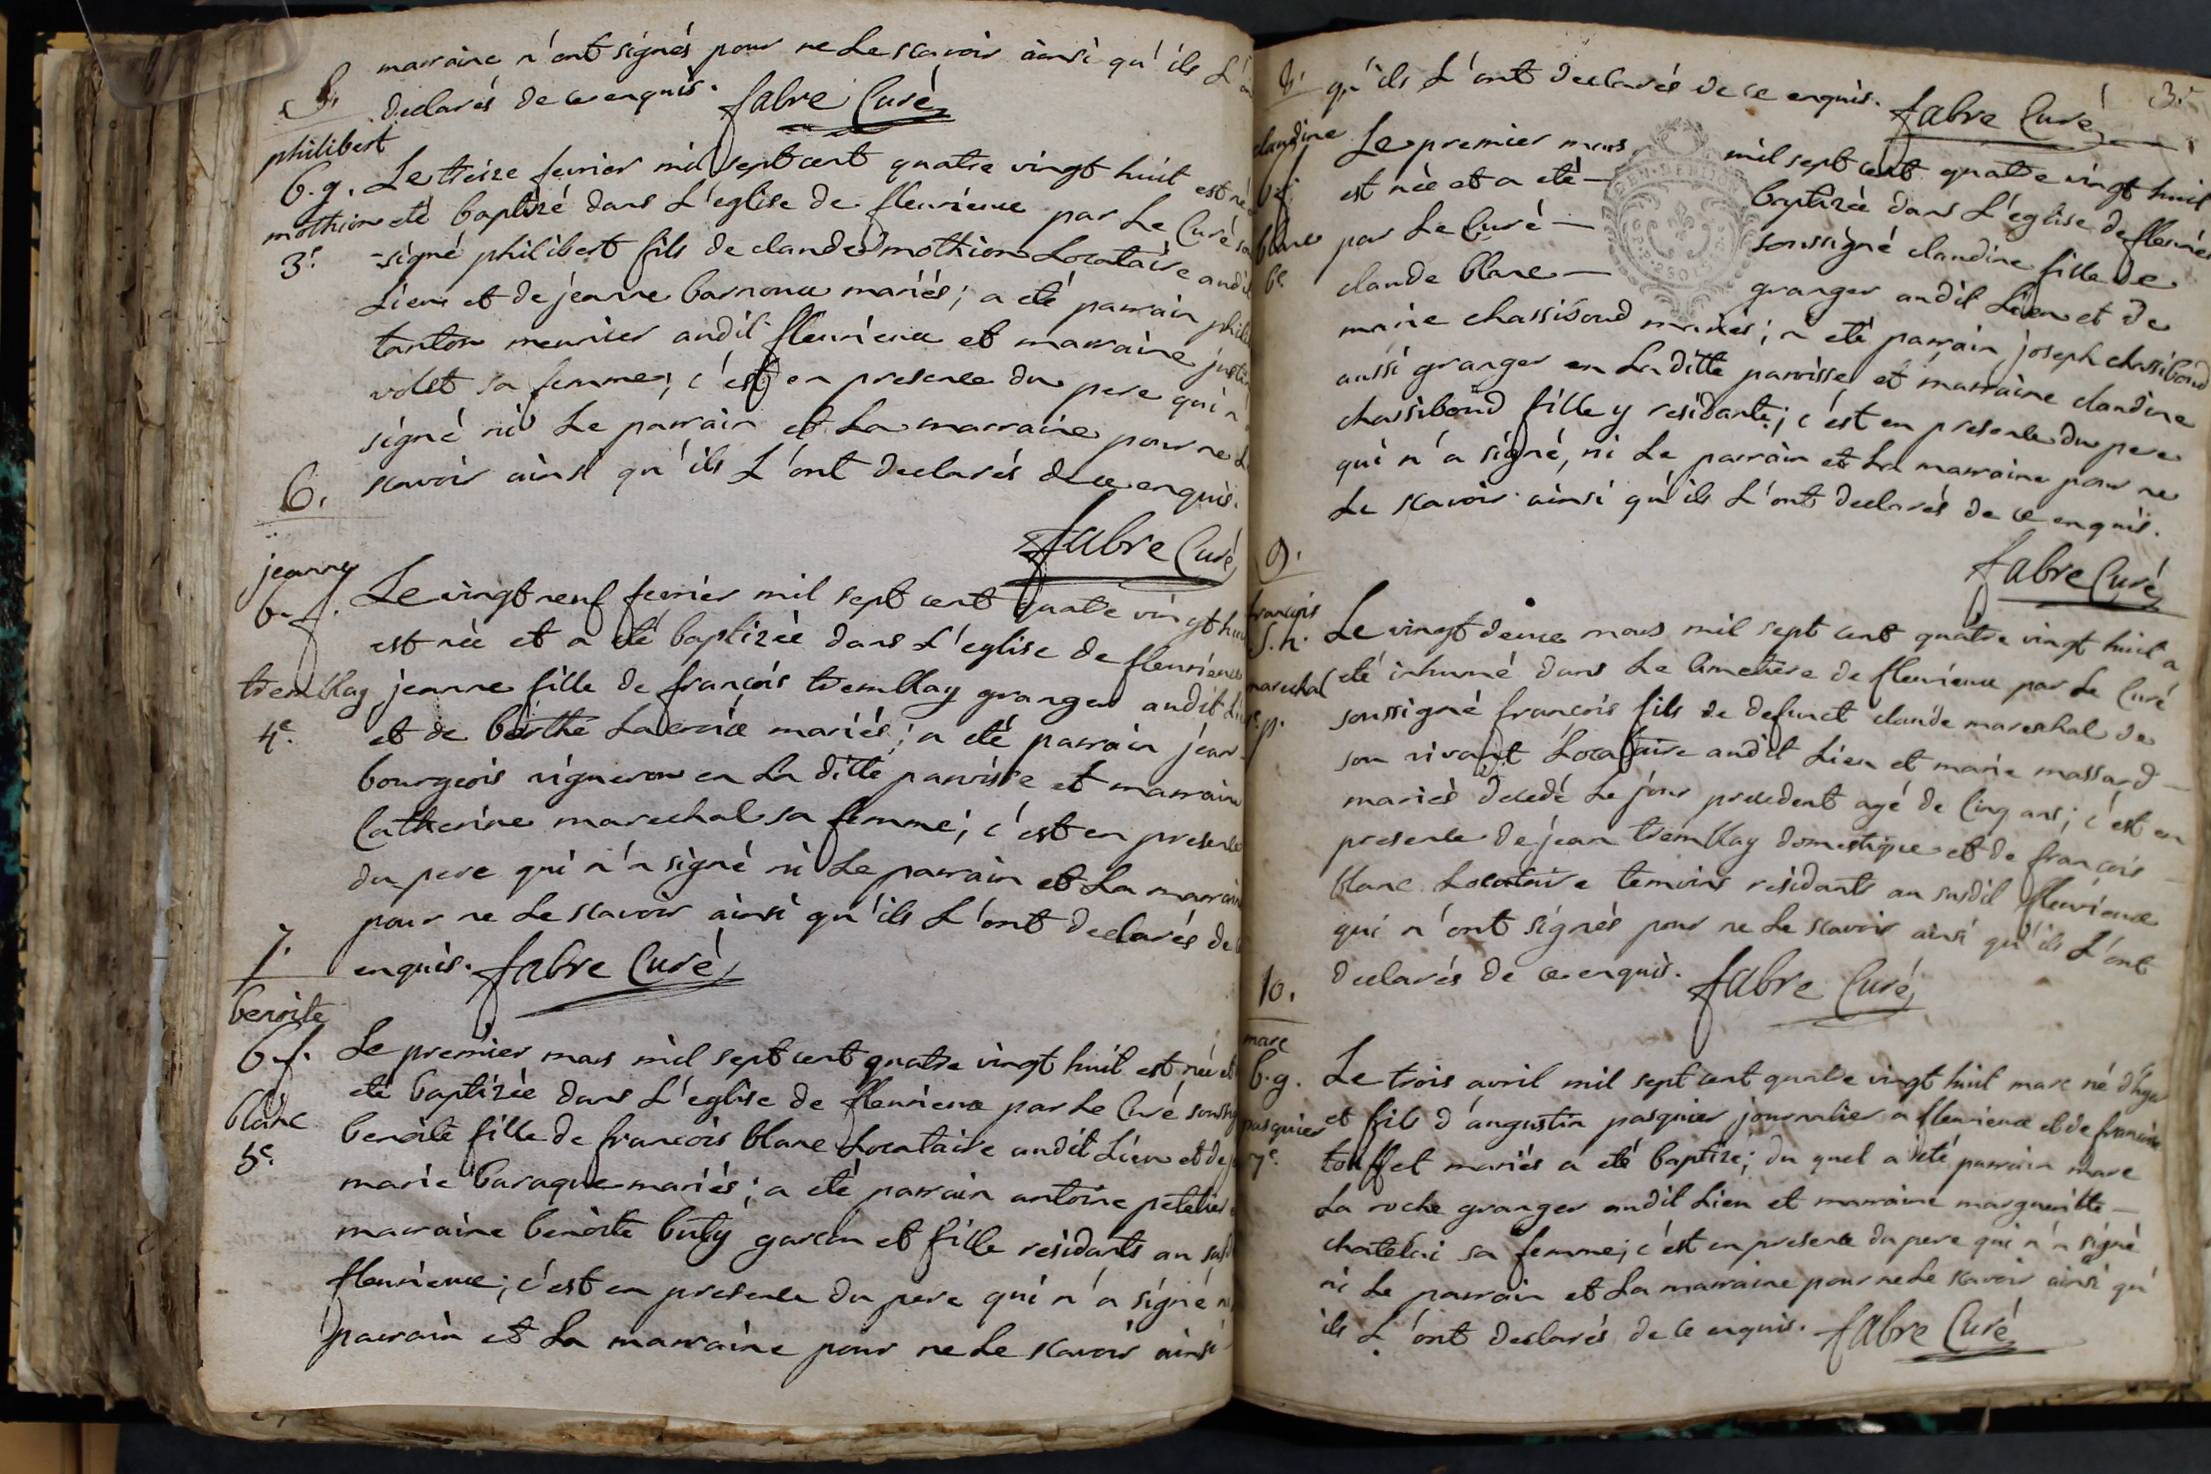 marraine n'ont signés pour ne Le scavoir ainsi qu'ils L'
declarés de ce enquis. fabre Curé
5.
philibert
b.g.
mothion
3e.
Le treize fevrier mil sept cent quatre vingt huit est né
eté baptizé dans L'eglise de fleurieux par Le Curé
-signé philibert fils de claude mothion Locataire audit
Lieu et de jeanne barnoux mariés; a eté parrain
tanton meunier audit fleurieux et marraine
volet sa femme; c'est en presence du pere qui n'
signé ni Le parrain et La marraine pour ne
scavoir ainsi qu'ils L'ont declarés de ce enquis.
fabre Curé
6.
jeanne
b.f.
tremblay
4e.
Le vingt neuf fevrier mil sept cent quatre vingt
est née et a eté baptizée dans L'eglise de fleurieux
jeanne fille de françois tremblay granger audit
et de berthe Lacroix mariés; a eté parrain jean
bourgeois vigneron en La ditte paroisse et marraine
Catherine marechal sa femme; c'est en presence
du pere qui n'a signé ni Le parrain et La
pour ne Le scavoir ainsi qu'ils L'ont declarés de
enquis. fabre Curé
7.
benoite
b.f.
blanc
5e.
Le premier mars mil sept cent quatre vingt huit est née et
eté baptizée dans L'eglise de fleurieux par Le Curé
benoite fille de francois blanc Locataire audit Lieu et de
marie baraque mariés; a eté parrain antoine petetier
marraine benoite buty garcon et fille residants au
fleurieux; c'est en presence du pere qui n'a signé
parrain et La marraine pour ne Le scavoir ainsi
3e
qu'ils L'ont declarés de ce enquis. fabre Curé
8.
claudine
b.f.
blanc
6e
Le premier mars mil sept cent quatre vingt huit
est née et a eté — baptizée dans L'eglise de
par Le Curé — soussigné claudine fille de
claude blanc — granger audit Lieu et de
marie chassiboud mariés; a eté parrain joseph chassiboud
aussi granger en La ditte paroisse et marraine claudine
chassiboud fille y residante; c'est en presence du pere
qui n'a signé, ni Le parrain et La marraine pour ne
Le scavoir ainsi qu'ils L'ont declarés de ce enquis.
fabre Curé
9.
francois
S.n.
marechal
Le vingt deux mars mil sept cent quatre vingt huit a
eté inhumé dans Le Cimetiere de fleurieux par Le Curé
soussigné francois fils de defunct claude mareshal de
son vivant Locataire audit Lieu et marie massard —
mariés decedé Le jour precedent agé de Cinq ans; c'est en
presence de jean tremblay domestique et de francois —
blanc Locataire temoins residants au susdit fleurieux
qui n'ont signés pour ne Le scavoir ainsi qu'ils L'ont
declarés de ce enquis. fabre Curé
10.
marc
b.g.
pasquier
7e.
Le trois avril mil sept cent quatre vingt huit marc né d'hyer
et fils d'augustin pasquier journalier a fleurieux et de
touffet mariés a eté baptizé; du quel a eté parrain marc
La roche granger audit Lieu et marraine margueritte —
chatelai sa femme; c'est en presence du pere qui n'a signé
ni Le parrain et La marraine pour ne Le scavoir ainsi qu'
ils L'ont declarés de ce enquis. fabre Curé